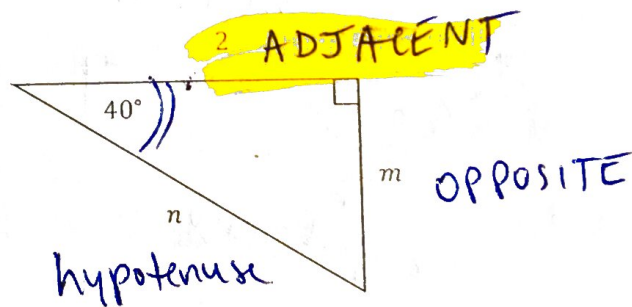 2 ADJACENT
40°
m OPPOSITE
n
hypotenuse